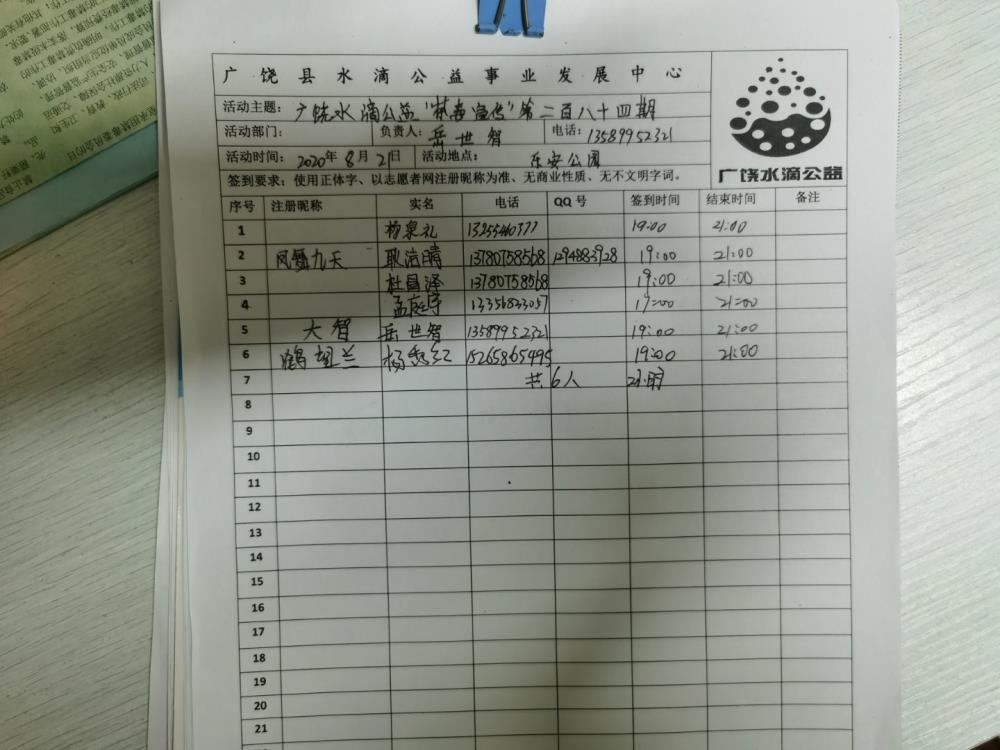 广饶县水滴公益事业发展中心
活动主题: 广饶水滴公益"禁毒宣传"第二百八十四期
活动部门: 负责人: 岳世智 电话: 13589952321
活动时间: 2020年8月2日 活动地点: 乐安公园
签到要求: 使用正体字、以志愿者网注册昵称为准、无商业性质、无不文明字词。
广饶水滴公益
序号 注册昵称 实名 电话 QQ号 签到时间 结束时间 备注
1 杨泉礼 19:00 21:00
2 凤舞九天 耿洁晴 13780758568 1294883928 19:00 21:00
3 杜昌泽 13780758568 19:00 21:00
4 孟庭宇 13356833057 19:00 21:00
5 大智 岳世智 13589952321 19:00 21:00
6 鹤望兰 杨秀红 15265865495 19:00 21:00
7 共6人 2小时
8
9
10
11
12
13
14
15
16
17
18
19
20
21